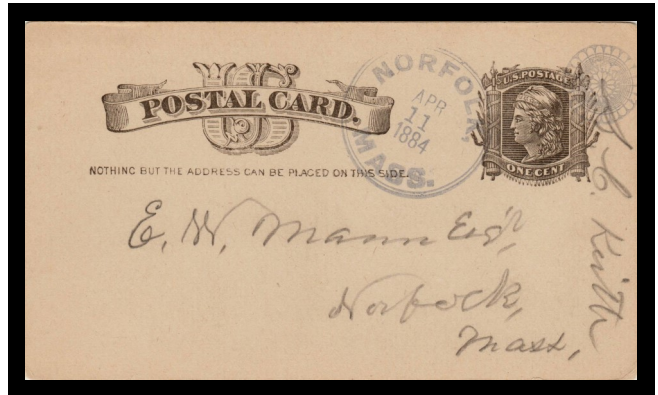 US
POSTAL CARD.
NOTHING BUT THE ADDRESS CAN BE PLACED ON THIS SIDE.
NORFOLK,
APR
11
1884
MASS.
U.S. POSTAGE
ONE CENT
E. W. Mann Esq,
Norfolk,
Mass,
C. Keith